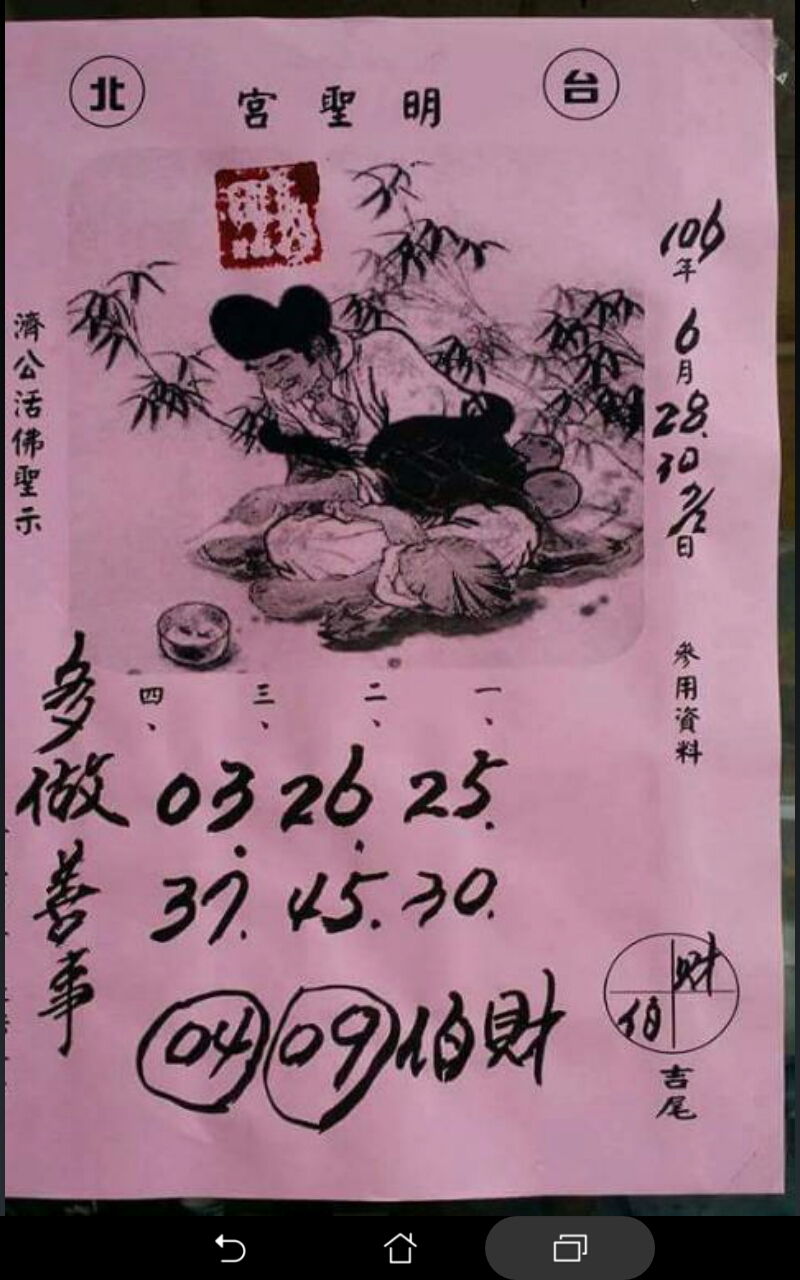 台北
明聖宮
106年6月28.30 7/2日
參用資料
一、
二、
三、
四、
25. 26. 03.
30. 45. 37.
09 04
伯財
財
伯
吉尾
多做善事
濟公活佛聖示